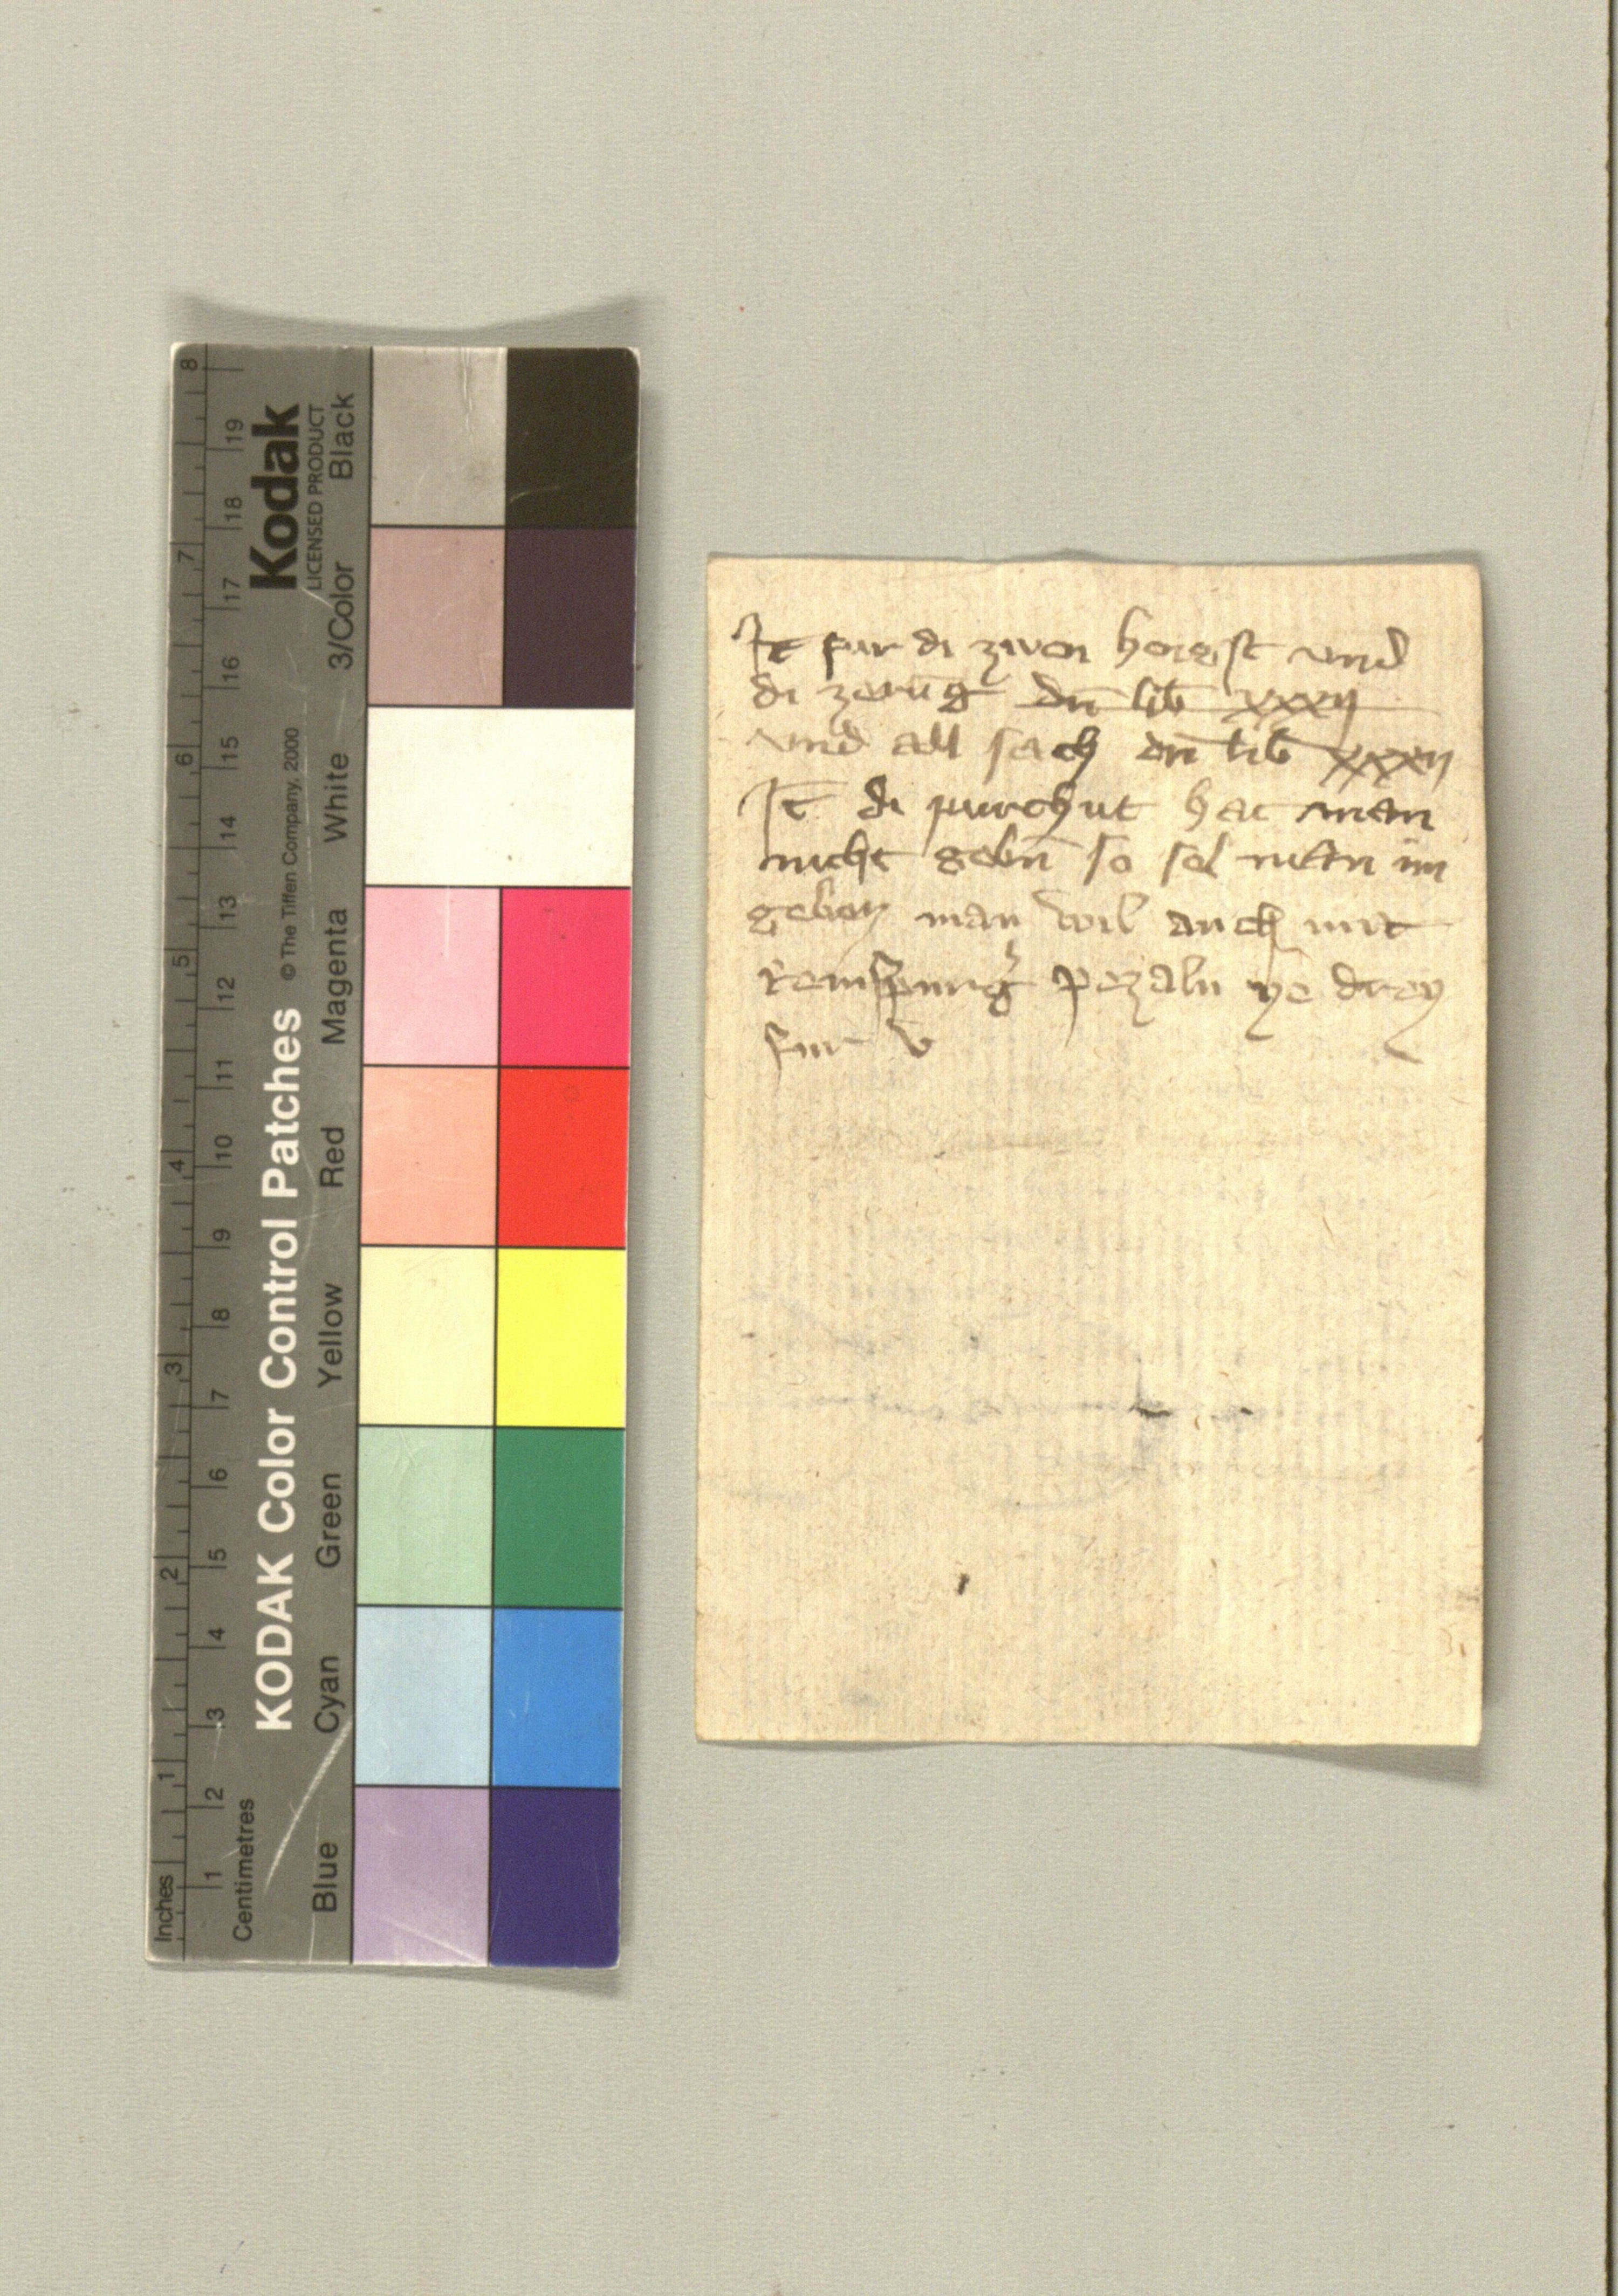 KODAK Color Control Patches © The Tiffen Company, 2000
Kodak
LICENSED PRODUCT
Blue Cyan Green Yellow Red Magenta White 3/Color Black
Inches 1 2 3 4 5 6 7 8
Centimetres 1 2 3 4 5 6 7 8 9 10 11 12 13 14 15 16 17 18 19
It fur di zwen hengst vnd
di zerūg dn̄ lib xxxij
vnd all sach dn̄ lib xxxij
It̄ di purchut hat man
nicht gebn̄ so sol man im
geben man wil auch mit
Remspurg̕ pezaln ye drey
fur v